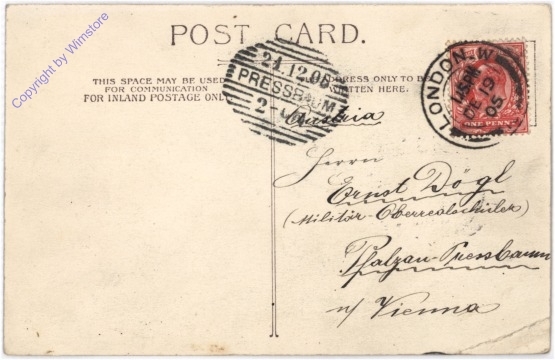 Copyright by Wimstore
POST CARD.
THIS SPACE MAY BE USED
FOR COMMUNICATION
FOR INLAND POSTAGE ONLY
ADDRESS ONLY TO BE
WRITTEN HERE.
21.12.05
PRESSBAUM
LONDON. W
DE 19
05
ONE PENNY
Austria
Herrn
Ernst Dögl
(Militär-Oberrealschüler)
Pfalzau-Pressbaum
n/ Vienna